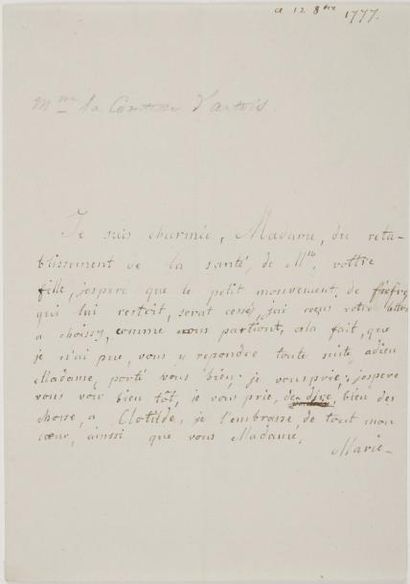 a 12 8bre 1777.
Mme la Comtesse d'artois.
Je suis charmée, Madame, du reta-
blissement de la santé, de Mlle, vottre
fille, j'espere que le petit mouvement, de fievre
qui lui restoit, serat cessé, j'ai reçus votre lettre
a choissy, comme nous partiont, cela fait, que
je n'ai pue, vous y repondre toute suite, adieu
Madame, porté vous bien; je vous prie; j'espere
vous voir bien tôt, je vous prie, de dire, bien des
chosse, a Clotilde, je l'embrasse, de tout mon
cœur, ainsi que vous Madame,
Marie-